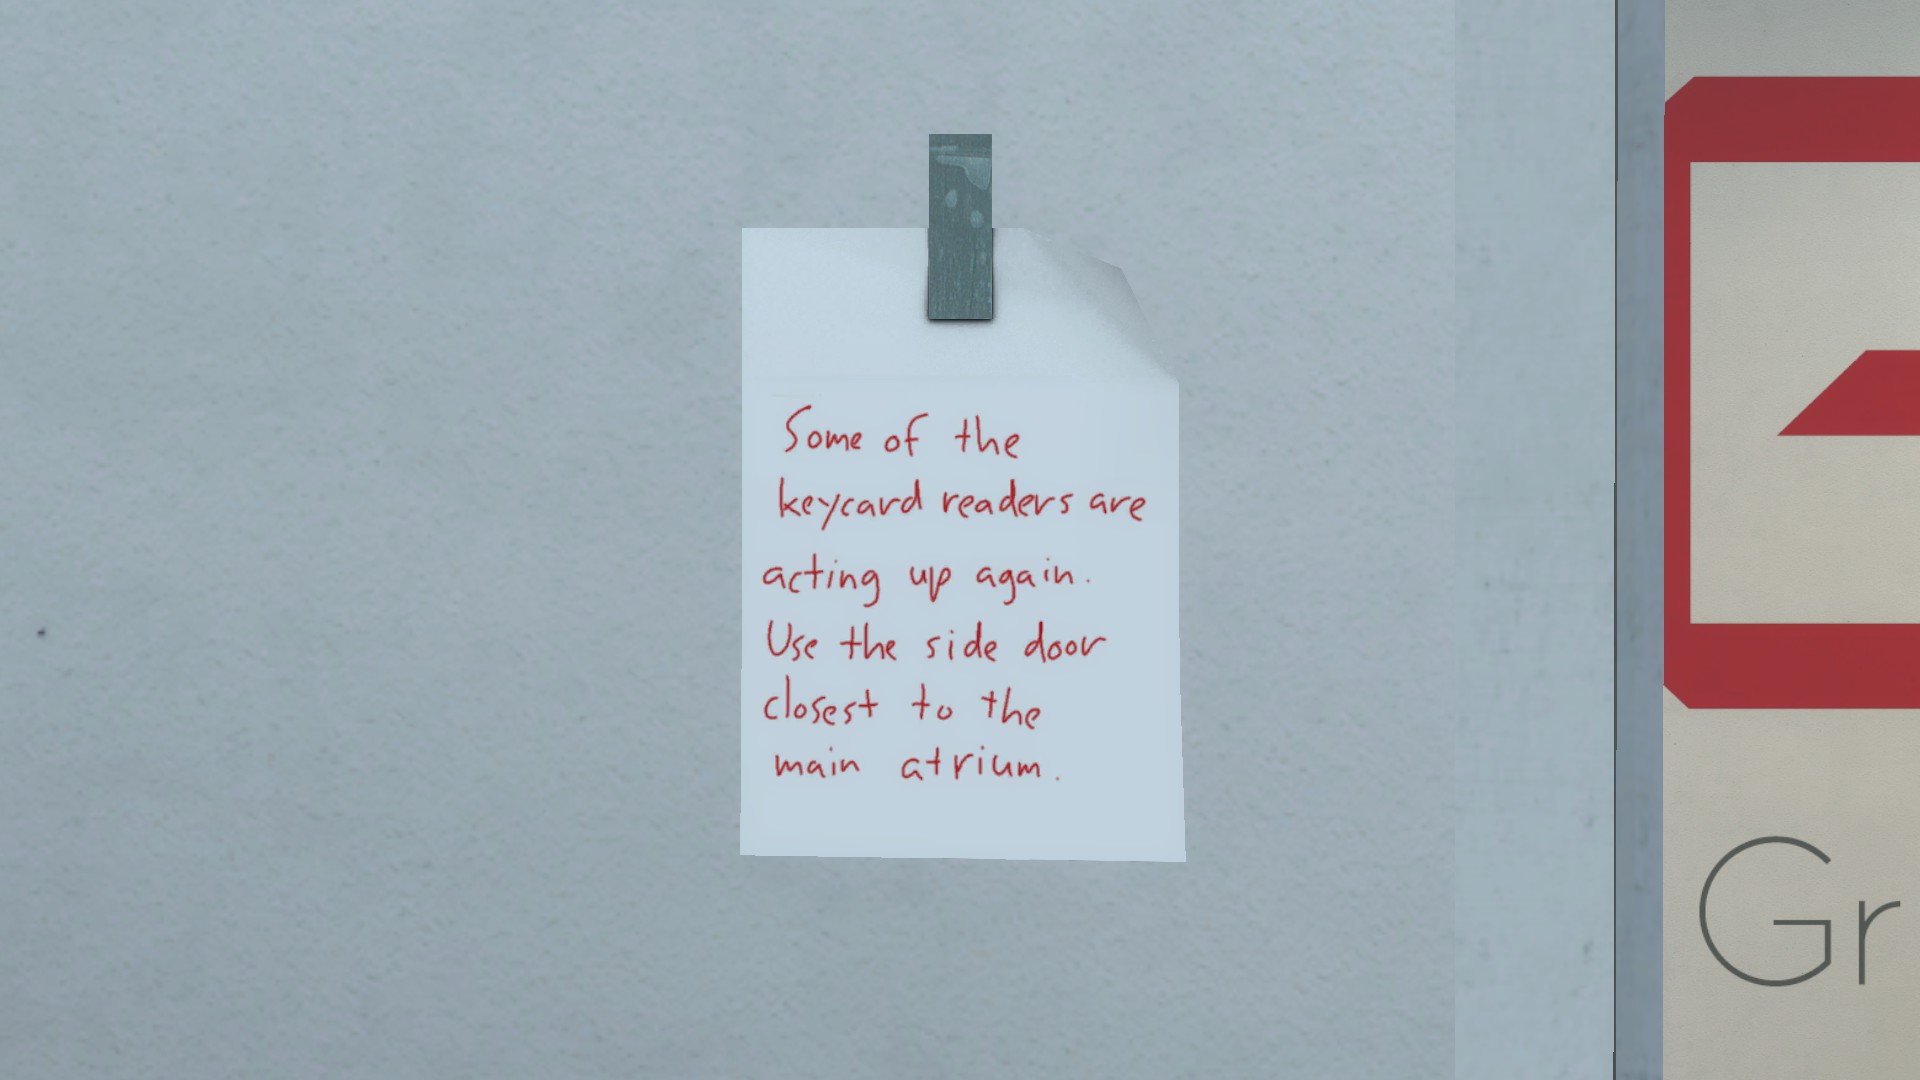 Some of the
keycard readers are
acting up again.
Use the side door
closest to the
main atrium.
Gr